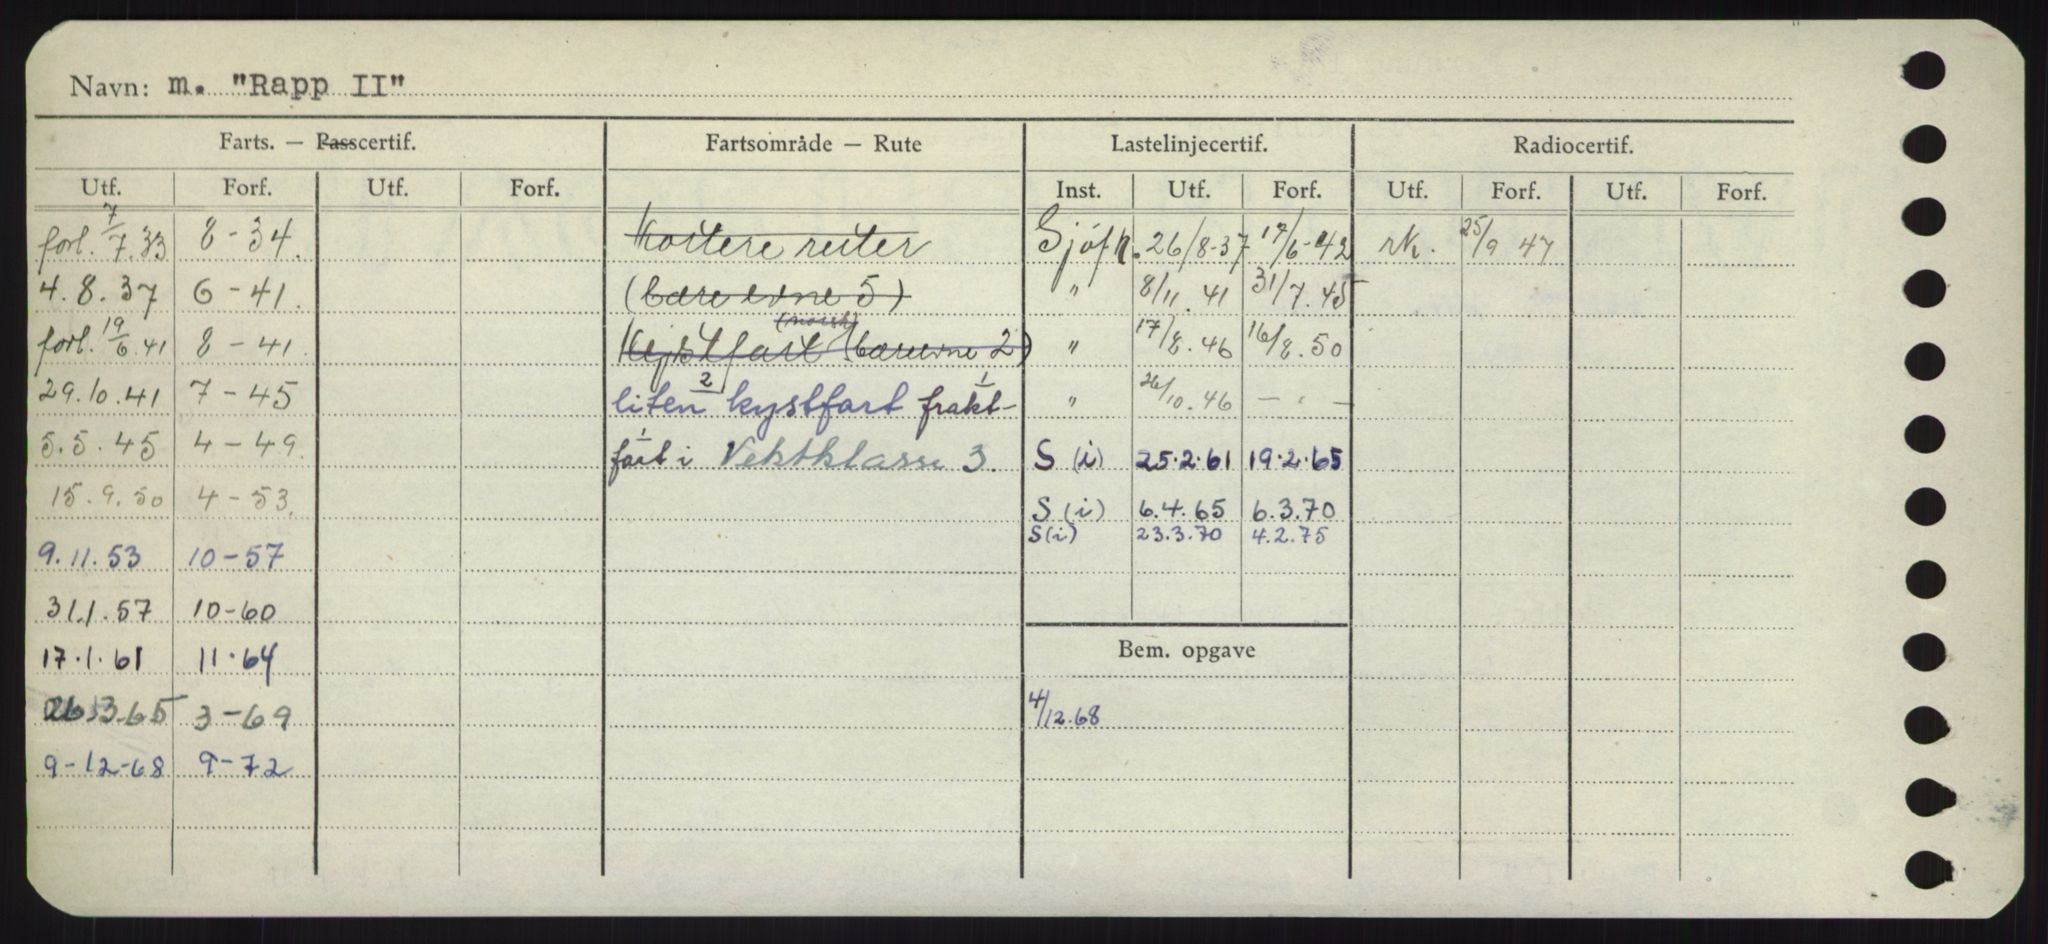 Navn: m. "Rapp II"
Farts. — Passcertif. Fartsområde — Rute Lastelinjecertif. Radiocertif.
Utf. Forf. Utf. Forf. Inst. Utf. Forf. Utf. Forf. Utf. Forf.
forl. 7/7.33 8-34. Kortere ruter Sjöfk. 26/8-37 17/6-42 rk. 25/9 47
4.8.37 6-41. (bæreevne 5) " 8/11.41 31/7.45
(norsk)
forl. 19/6.41 8-41. Kystfart (bæreevne 2) " 17/8.46 16/8.50
29.10.41 7-45 liten 2 kystfart frakt- 1 " 26/10.46 — " —
5.5.45 4-49. fart i Vektklasse 3. S (i) 25.2.61 19.2.65
15.9.50 4-53. S (i) 6.4.65 6.3.70
S (i) 23.3.70 4.2.75
9.11.53 10-57
31.1.57 10-60
17.1.61 11.64 Bem. opgave
26.3.65 3-69 4/12.68
9-12-68 9-72